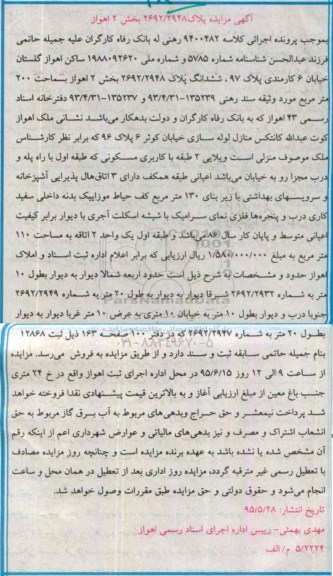 آگهی مزایده پلاک۲۶۹۲/۲۹۴۸ بخش ۲ اهواز
بموجب پرونده اجرائی کلاسه ۹۴۰۰۴۸۲ رهنی له بانک رفاه کارگران علیه جمیله حاتمی
فرزند عبدالحسن شناسنامه شماره ۵۷۸۵ و شماره ملی ۱۹۸۸۰۹۲۶۲۰ ساکن اهواز گلستان
خیابان ۶ کارمندی پلاک ۹۷ ، ششدانگ پلاک ۲۶۹۲/۲۹۴۸ بخش ۲ اهواز بمساحت ۲۰۰
متر مربع مورد وثیقه سند رهنی ۱۳۵۲۳۹-۹۳/۴/۳۱ و ۱۳۵۲۳۷-۹۳/۴/۳۱ دفترخانه اسناد
رسمی ۴۳ اهواز که به بانک رفاه کارگران و دولت بدهکار می‌باشد نشانی ملک اهواز
کوت عبدالله کانتکس منازل لوله سازی خیابان کوثر ۶ پلاک ۹۶ که برابر نظر کارشناس
ملک موصوف منزلی است ویلایی ۲ طبقه با کاربری مسکونی که طبقه اول با راه پله و
درب مجزا رو به خیابان می‌باشد اعیانی طبقه همکف دارای ۳ اتاق‌هال پذیرایی آشپزخانه
و سرویسهای بهداشتی با زیر بنای ۱۳۰ متر مربع کف حیاط موزاییک بدنه داخلی سفید
کاری درب و پنجره‌ها فلزی نمای سرامیک با شیشه اسکلت آجری با دیوار برابر کیفیت
اعیانی متوسط و پایان کار سال ۲۸۶ می‌باشد و طبقه اول یک واحد ۲ اتاقه به مساحت ۱۱۰
متر مربع به مبلغ ۱/۵۸۰/۰۰۰/۰۰۰ ریال ارزیابی که برابر اعلام اداره ثبت اسناد و املاک
اهواز حدود و مشخصات به شرح ذیل است حدود اربعه شمالا دیوار به دیوار بطول ۱۰
متر به شماره ۲۶۹۲/۲۹۳۲ شرقا دیوار به دیوار به طول ۲۰ متر به شماره ۲۶۹۲/۲۹۴۹
جنوبا درب و دیوار بطول ۱۰ متر به خیابان ۱۰ متری به عرض ۱۰ متر غربا دیوار به دیوار
بطـول ۲۰ متر به شماره ۲۶۹۲/۲۹۴۷ که در دفتر ۱۰۰ صفحه ۱۶۳ ذیل ثبت ۱۲۸۶۸
بنام جمیله حاتمی سابقه ثبت و سند دارد و از طریق مزایده به فروش می‌رسد. مزایده
از ساعت ۹ الی ۱۲ روز ۹۵/۶/۱۵ در محل اداره اجرای ثبت اهواز واقع در خ ۲۴ متری
جنب باغ معین از مبلغ ارزیابی آغاز و به بالاترین قیمت پیشنهادی نقدا فروخته خواهد
شد پرداخت نیمعشر و حق حراج وبدهی‌های مربوط به آب برق گاز مربوط به حق
انشعاب اشتراک و مصرف و نیز بدهی‌های مالیاتی و عوارض شهرداری اعم از اینکه رقم
آن مشخص شده یا نشده باشد به عهده برنده مزایده است و چنانچه روز مزایده مصادف
با تعطیل رسمی غیر مترقبه گردد، مزایده روز اداری بعد از تعطیل در همان محل و ساعت
انجام می‌شود و حقوق دولتی و حق مزایده طبق مقررات وصول خواهد شد.
تاریخ انتشار: ۹۵/۵/۲۸
مهدی بهمئی- رییس اداره اجرای اسناد رسمی اهواز
۵/۲۲۲۴ م/الف